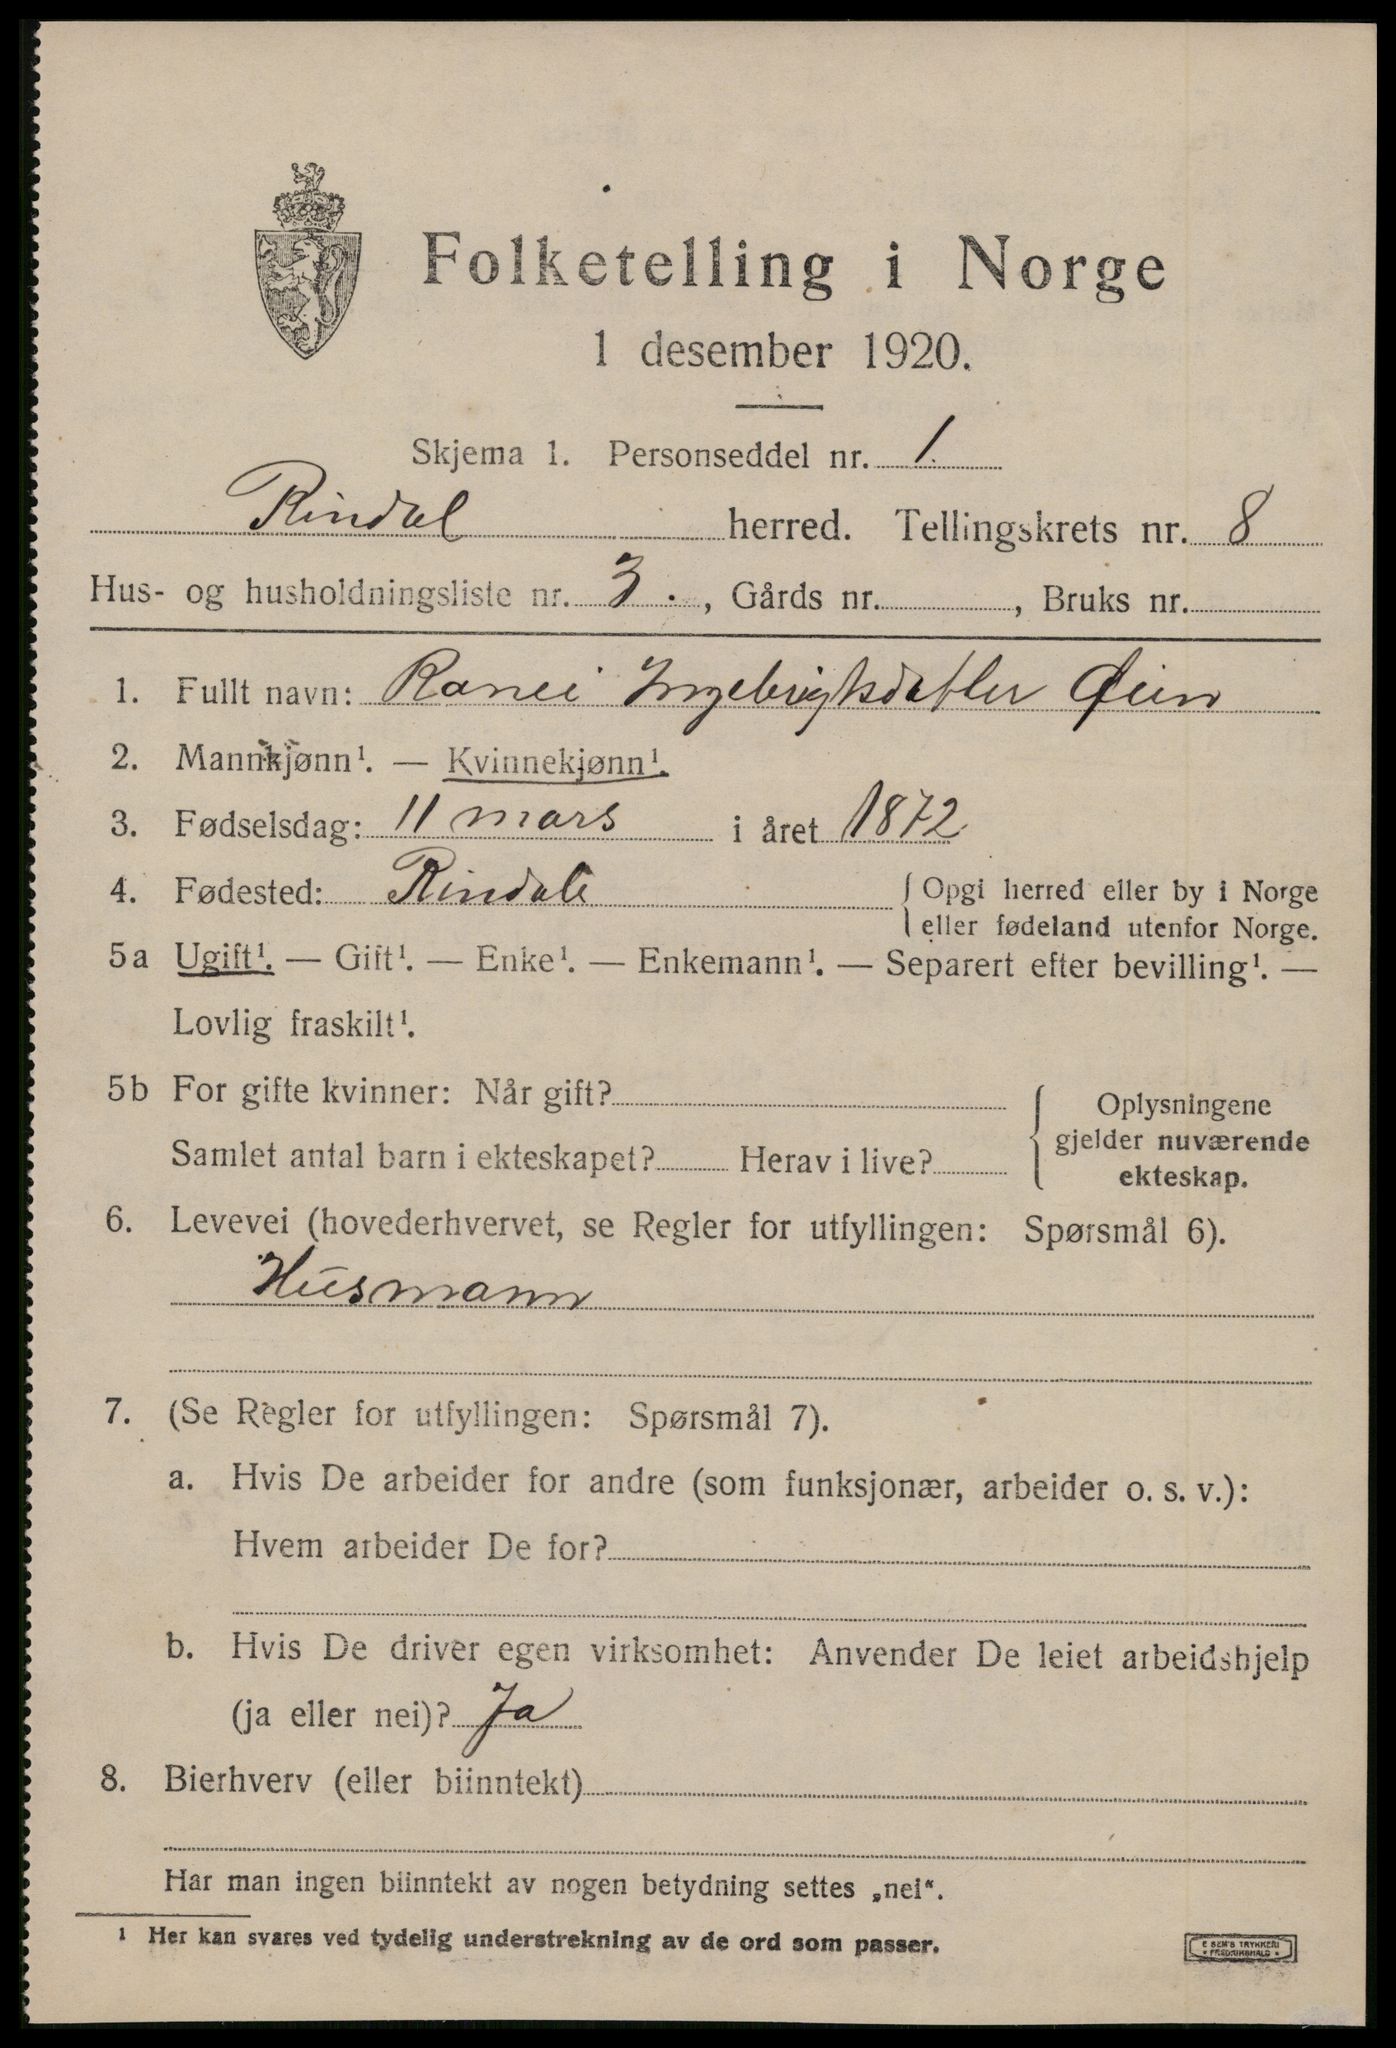 Folketelling i Norge
1 desember 1920.
Skjema 1. Personseddel nr. 1
Rindal herred. Tellingskrets nr. 8
Hus- og husholdningsliste nr. 3. , Gårds nr. , Bruks nr.
1. Fullt navn: Ranei Ingebrigtsdatter Øien
2. Mannkjønn¹. — Kvinnekjønn¹.
3. Fødselsdag: 11 mars i året 1872
4. Fødested: Rindale { Opgi herred eller by i Norge
eller fødeland utenfor Norge.
5a Ugift¹. — Gift¹. — Enke¹. — Enkemann¹. — Separert efter bevilling¹. —
Lovlig fraskilt¹.
5b For gifte kvinner: Når gift? { Oplysningene
gjelder nuværende
Samlet antal barn i ekteskapet? Herav i live? ekteskap.
6. Levevei (hovederhvervet, se Regler for utfyllingen: Spørsmål 6).
Husmann
7. (Se Regler for utfyllingen: Spørsmål 7).
a. Hvis De arbeider for andre (som funksjonær, arbeider o. s. v.):
Hvem arbeider De for?
b. Hvis De driver egen virksomhet: Anvender De leiet arbeidshjelp
(ja eller nei)? Ja
8. Bierhverv (eller biinntekt)
Har man ingen biinntekt av nogen betydning settes „nei“.
¹ Her kan svares ved tydelig understrekning av de ord som passer.
E SEM'S TRYKKERI
• FREDRIKSHALD •